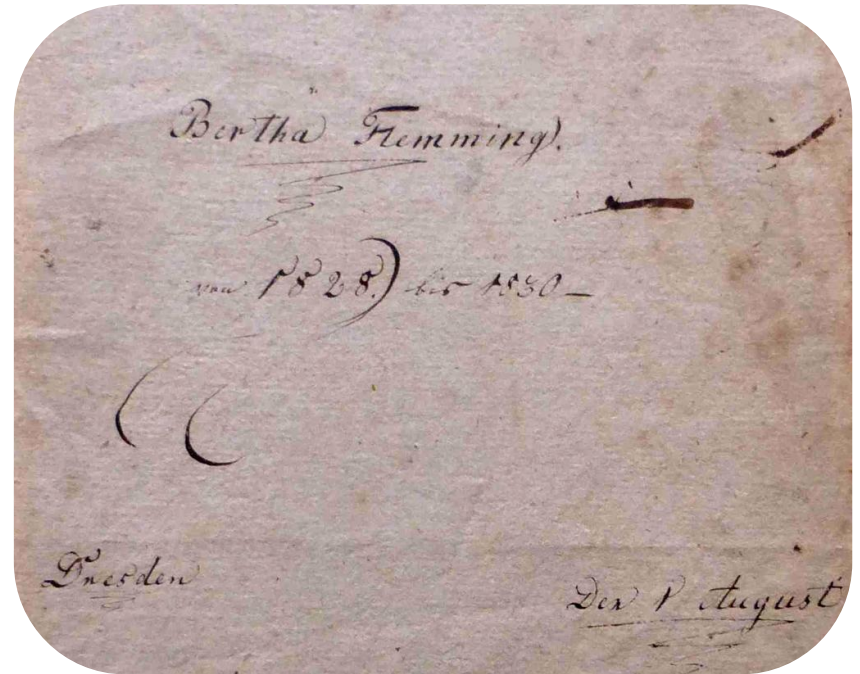 Bertha Flemming.
von 1828. bis 1830 –
Dresden
Den 1 August